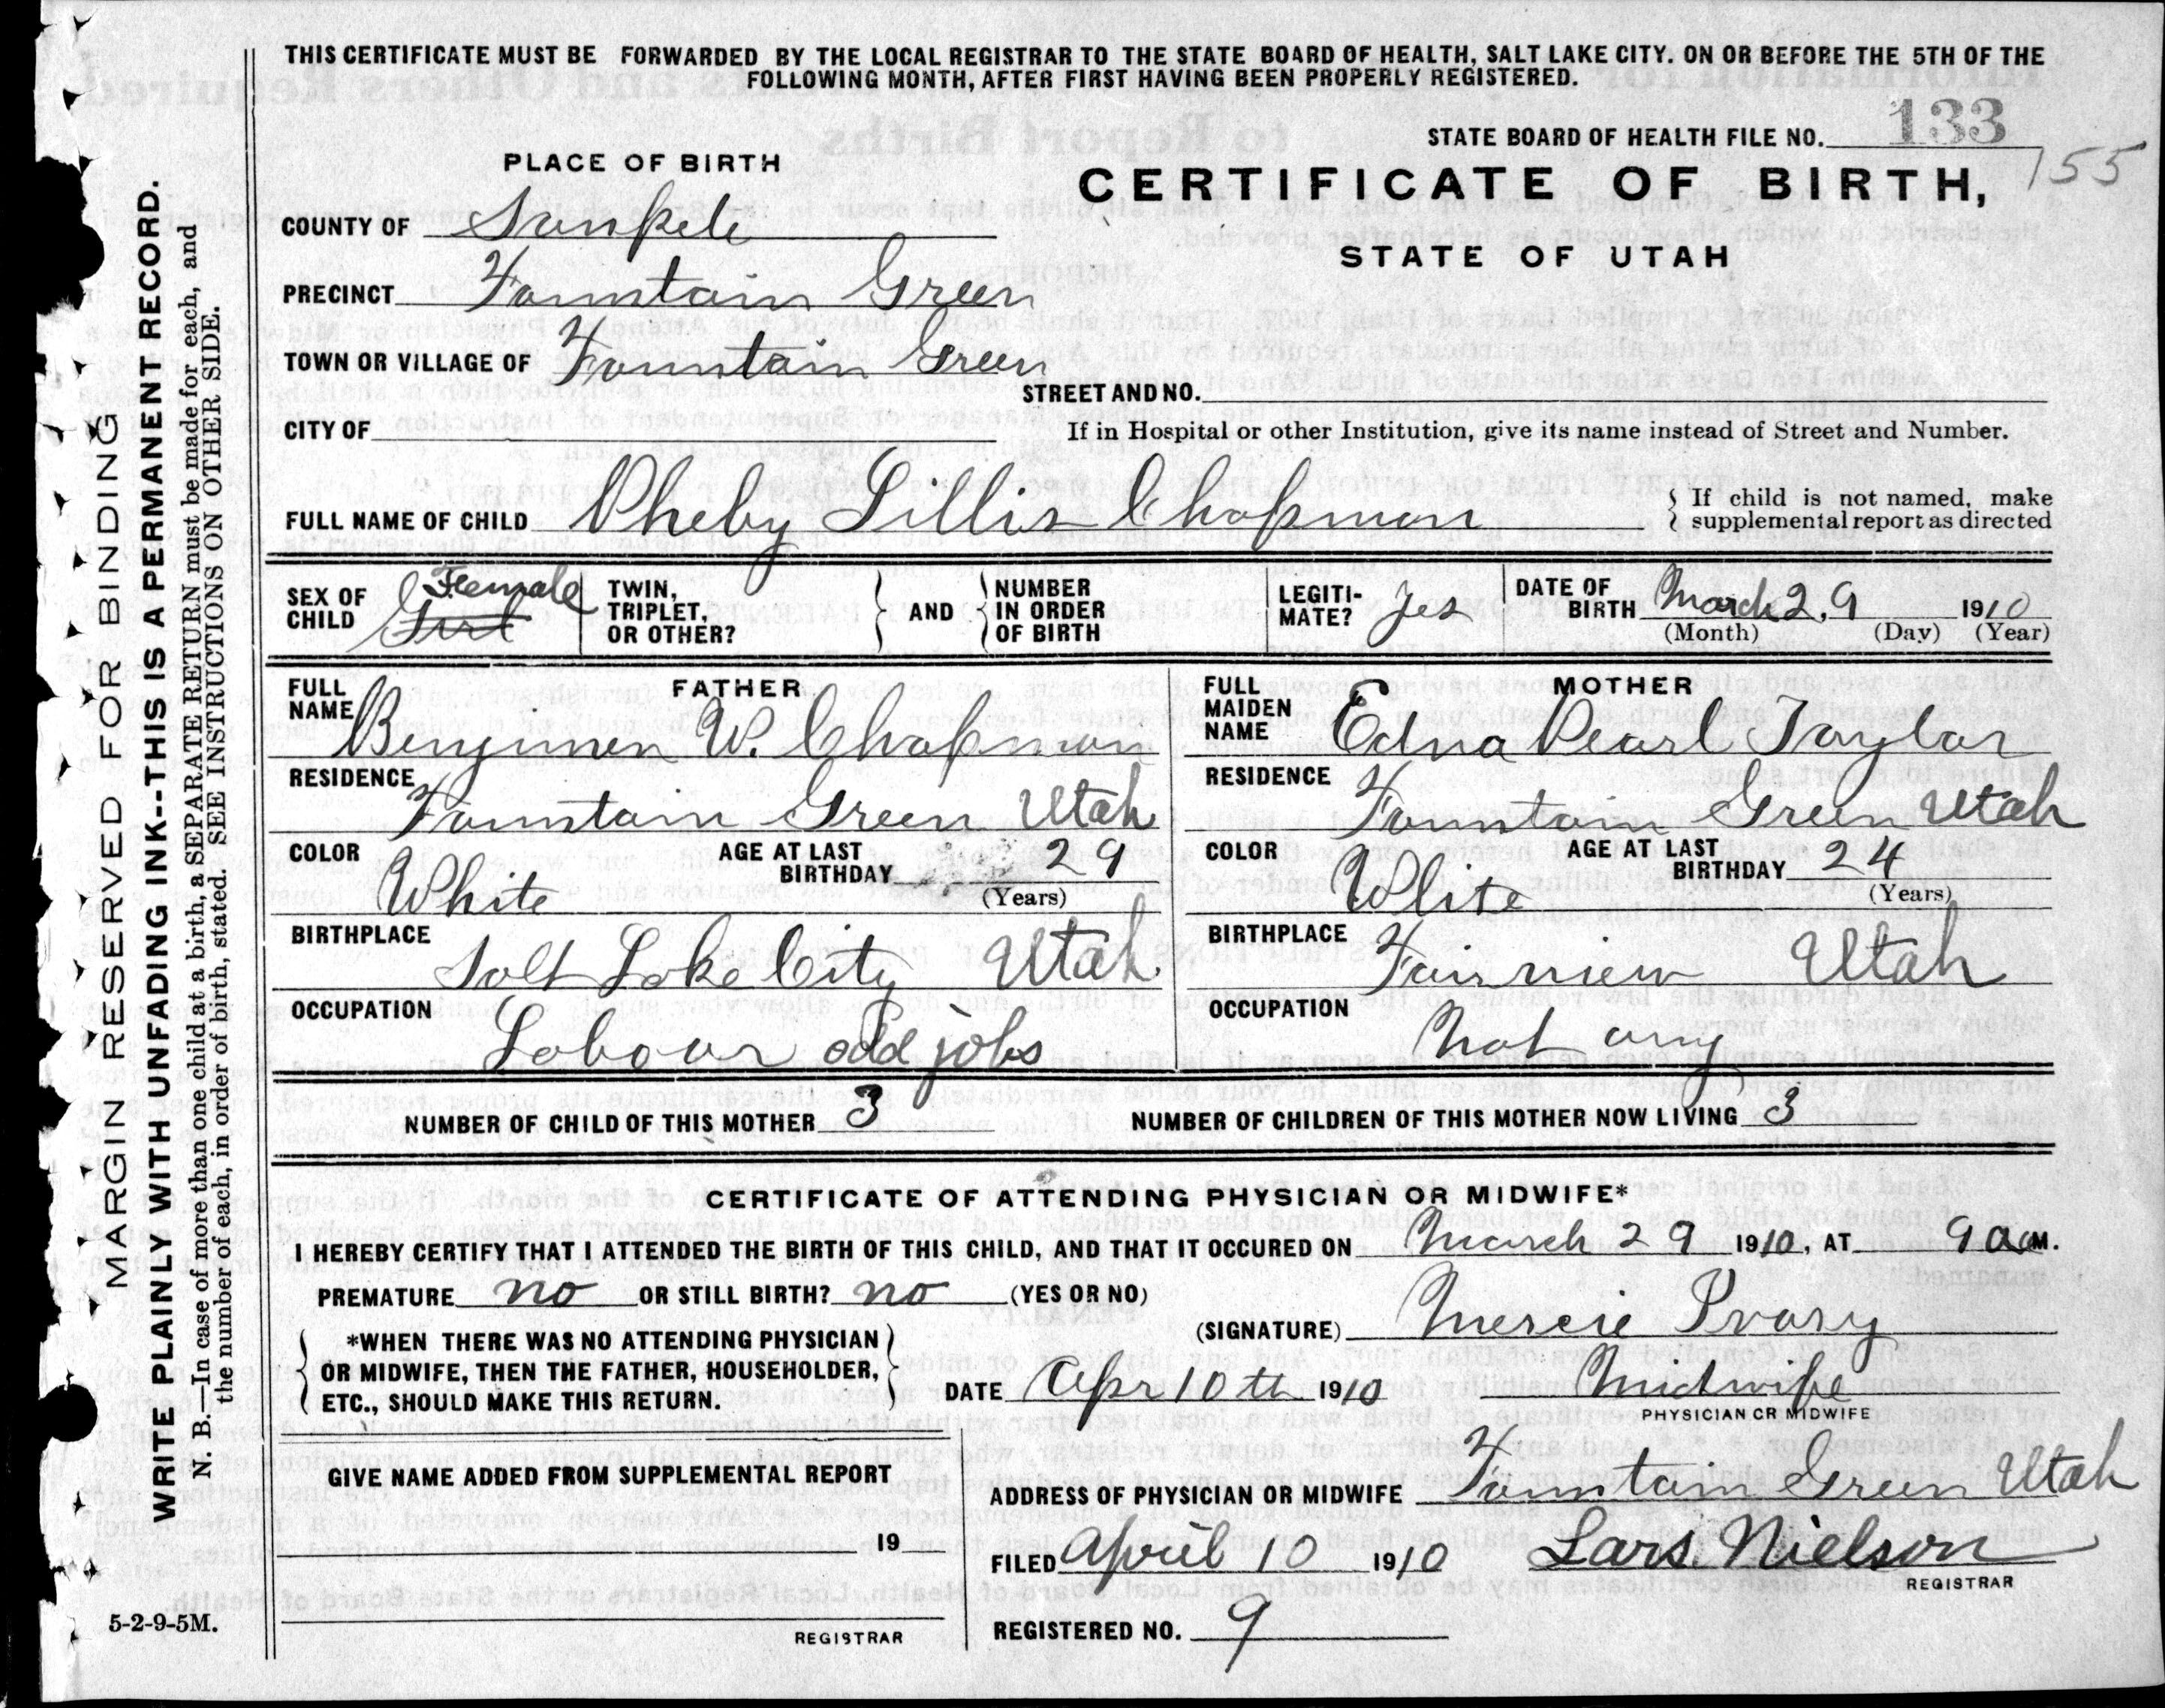 THIS CERTIFICATE MUST BE FORWARDED BY THE LOCAL REGISTRAR TO THE STATE BOARD OF HEALTH, SALT LAKE CITY. ON OR BEFORE THE 5TH OF THE
FOLLOWING MONTH, AFTER FIRST HAVING BEEN PROPERLY REGISTERED.
STATE BOARD OF HEALTH FILE NO. 133
155
PLACE OF BIRTH
CERTIFICATE OF BIRTH,
STATE OF UTAH
COUNTY OF Sanpete
PRECINCT Fountain Green
TOWN OR VILLAGE OF Fountain Green
STREET AND NO.
CITY OF
If in Hospital or other Institution, give its name instead of Street and Number.
FULL NAME OF CHILD Pheby Lillis Chapman
If child is not named, make
supplemental report as directed
SEX OF CHILD Female Girl
TWIN, TRIPLET, OR OTHER?
AND
NUMBER IN ORDER OF BIRTH
LEGITI-MATE? Yes
DATE OF BIRTH March 29 1910
(Month) (Day) (Year)
FATHER
FULL NAME Benjimen W. Chapman
RESIDENCE Fountain Green Utah
COLOR White
AGE AT LAST BIRTHDAY 29
(Years)
BIRTHPLACE Salt Lake City Utah
OCCUPATION Labour odd jobs
MOTHER
FULL MAIDEN NAME Edna Pearl Taylor
RESIDENCE Fountain Green Utah
COLOR White
AGE AT LAST BIRTHDAY 24
(Years)
BIRTHPLACE Fairview Utah
OCCUPATION Not any
NUMBER OF CHILD OF THIS MOTHER 3
NUMBER OF CHILDREN OF THIS MOTHER NOW LIVING 3
CERTIFICATE OF ATTENDING PHYSICIAN OR MIDWIFE*
I HEREBY CERTIFY THAT I ATTENDED THE BIRTH OF THIS CHILD, AND THAT IT OCCURED ON March 29 1910, AT 9 a M.
PREMATURE no OR STILL BIRTH? no (YES OR NO)
*WHEN THERE WAS NO ATTENDING PHYSICIAN
OR MIDWIFE, THEN THE FATHER, HOUSEHOLDER,
ETC., SHOULD MAKE THIS RETURN.
(SIGNATURE) Mercie Ivory
DATE Apr 10th 1910
Midwife
PHYSICIAN OR MIDWIFE
GIVE NAME ADDED FROM SUPPLEMENTAL REPORT
19
REGISTRAR
ADDRESS OF PHYSICIAN OR MIDWIFE Fountain Green Utah
FILED April 10 1910
Lars Nielson
REGISTRAR
REGISTERED NO. 9
5-2-9-5M.
MARGIN RESERVED FOR BINDING
WRITE PLAINLY WITH UNFADING INK--THIS IS A PERMANENT RECORD.
N. B.—In case of more than one child at a birth, a SEPARATE RETURN must be made for each, and
the number of each, in order of birth, stated. SEE INSTRUCTIONS ON OTHER SIDE.